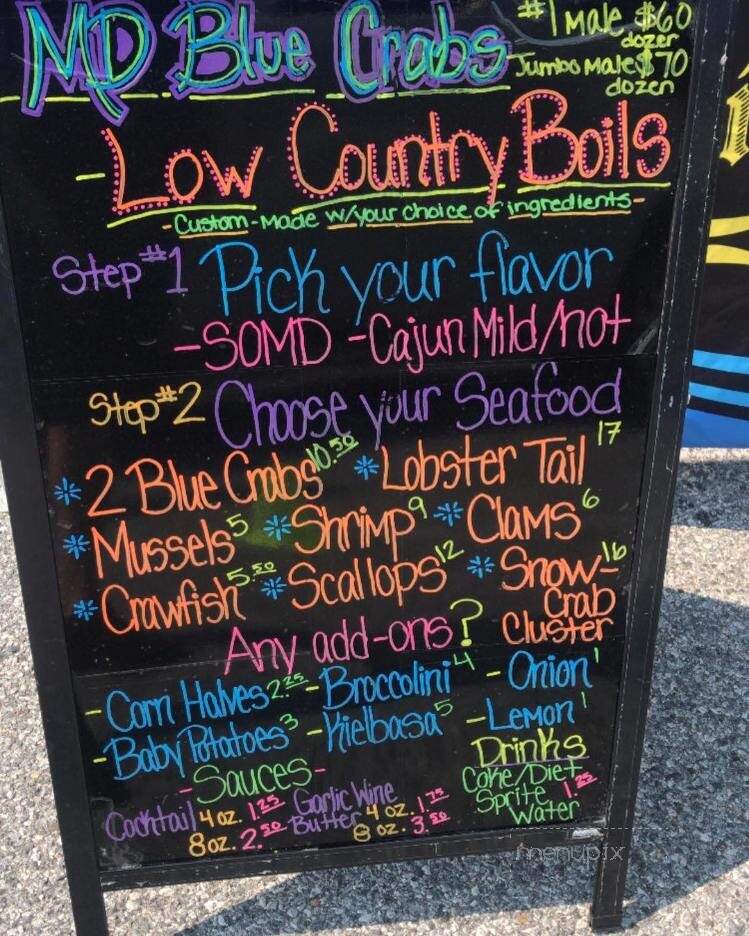 MD Blue Crabs #1 Male $60 dozen
Jumbo Male $70 dozen
- Low Country Boils
- Custom-Made w/your choice of ingredients -
Step #1 Pick your flavor
- SOMD - Cajun Mild/hot
Step #2 Choose your Seafood
* 2 Blue Crabs 10.50 * Lobster Tail 17
* Mussels 5 * Shrimp 9 * Clams 6
* Crawfish 5.50 * Scallops 12 * Snow-Crab Cluster 16
Any add-ons?
- Corn Halves 2.25 - Broccolini 4 - Onion 1
- Baby Potatoes 3 - Kielbasa 5 - Lemon 1
- Sauces -
Cocktail 4 oz. 1.25
8 oz. 2.50
Garlic Wine Butter 4 oz. 1.75
8 oz. 3.50
Drinks
Coke/Diet
Sprite 1.25
Water
menupix